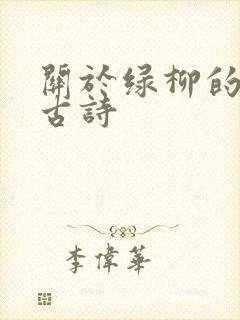 關於綠柳的
古詩
李偉華